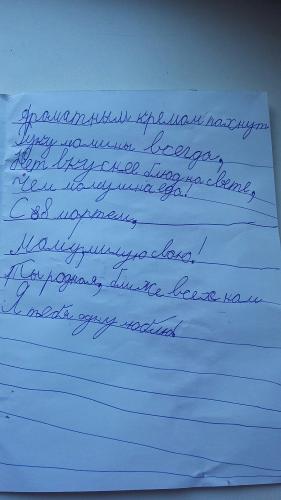 Ароматным кремом пахнут
Руки мамины всегда,
Нет вкуснее блюд на свете,
Чем мамулина еда!
С 8 мартем,
Маму милую свою!
Ты родная, ближе всех нам
Я тебя одну люблю!